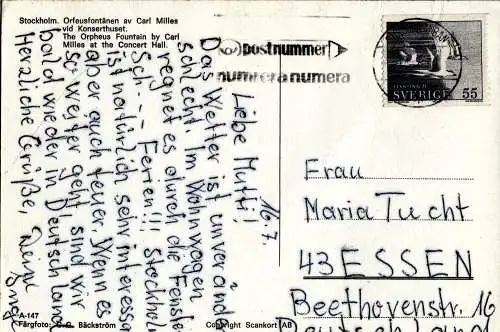 Stockholm. Orfeusfontänen av Carl Milles
vid Konserthuset.
The Orpheus Fountain by Carl
Milles at the Concert Hall.
postnummer
numrera numera
SVERIGE 55
16.7.
Liebe Mutti!
Das Wetter ist unveränd
schlecht. Im Wohnwagen
regnet es durch die Fenster
Sch.- Ferien!!! Stockholm
ist natürlich sehr interessa
aber auch teuer. Wenn es
so weiter geht sind wir
bald wieder in Deutschland
Herzliche Grüße, Deine
Frau
Maria Tucht
43 ESSEN
Beethovenstr. 16
A-147
Färgfoto: C.G. Bäckström
Copyright Scankort AB